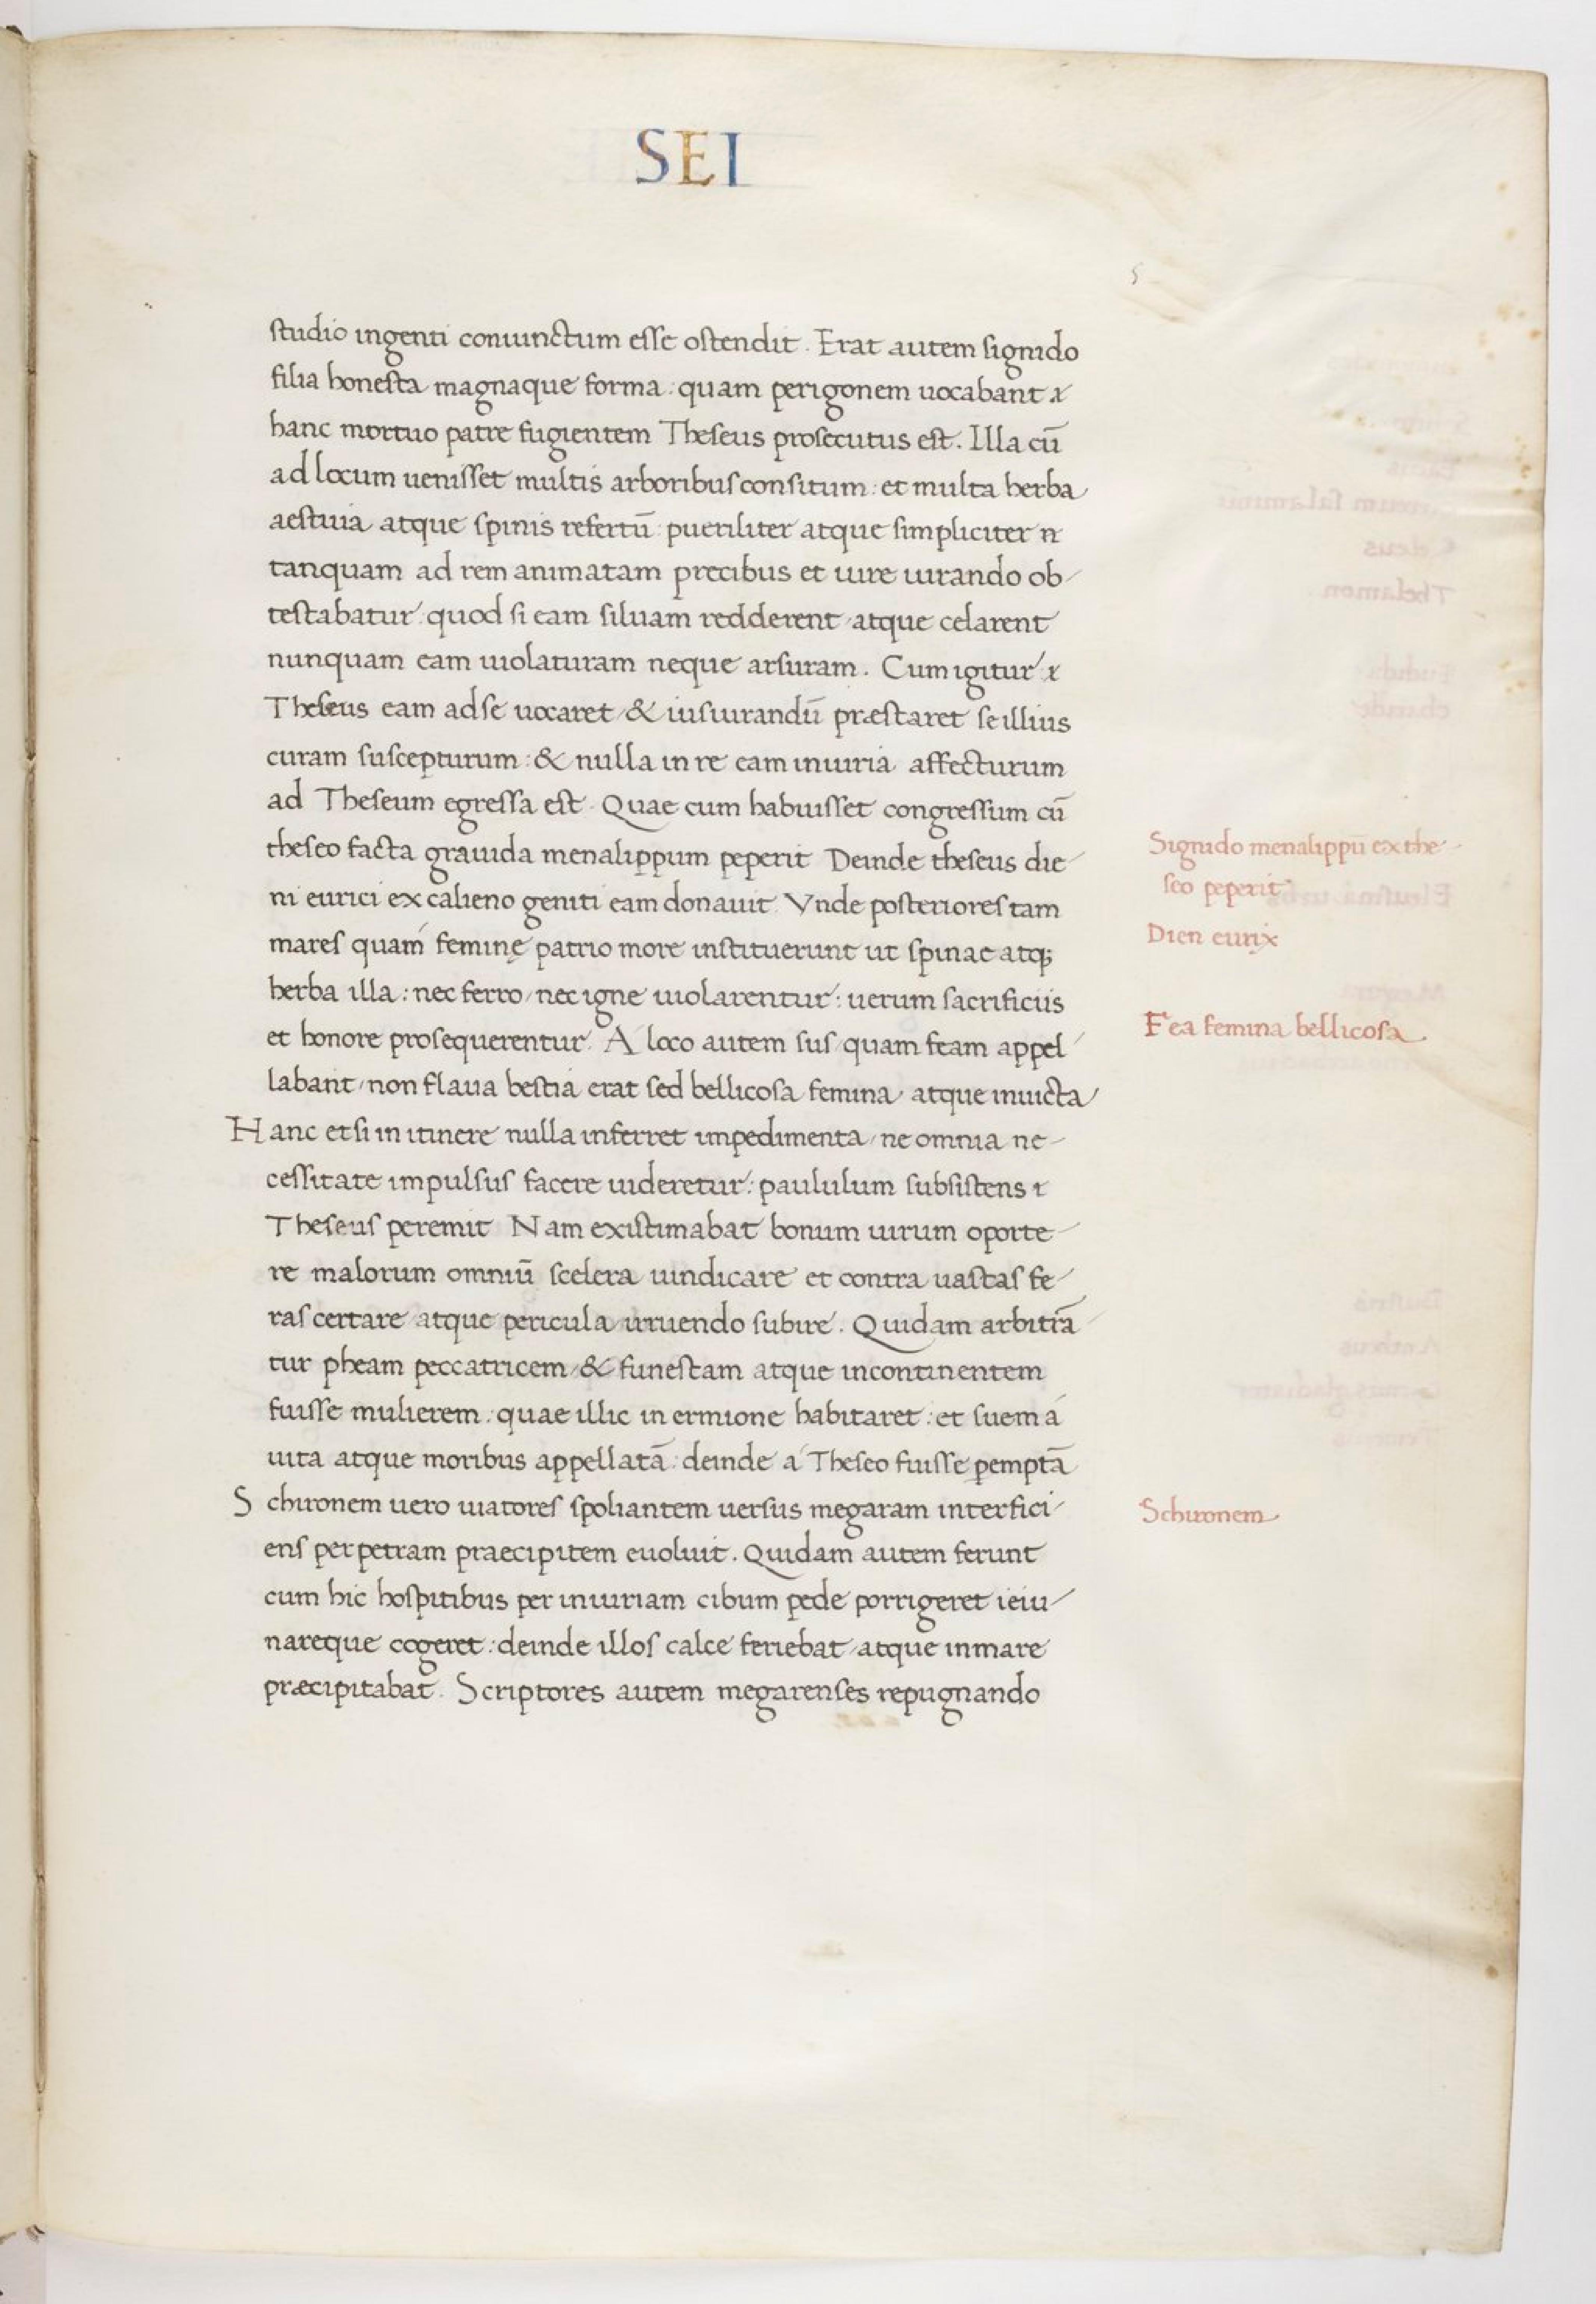 SEI
5
studio ingenti coniunctum esse ostendit. Erat autem signido
filia honesta magnaque forma: quam perigonem uocabant
hanc mortuo patre fugientem Theseus prosecutus est. Illa cū
ad locum uenisset multis arboribus consitum: et multa herba
aestiua atque spinis refertū: pueriliter atque simpliciter
tanquam ad rem animatam precibus et iure iurando ob-
testabatur: quod si eam siluam redderent, atque celarent
nunquam eam uiolaturam neque arsuram. Cum igitur
Theseus eam ad se uocaret, & iusiurandū præstaret se illius
curam suscepturum: & nulla in re eam iniuria affecturum
ad Theseum egressa est. Quae cum habuisset congressum cū
theseo facta grauida menalippum peperit Deinde theseus die-
ni eurici ex calieno geniti eam donauit. Vnde posteriores tam
mares quam feminę patrio more instituerunt ut spinae atq;
herba illa: nec ferro, nec igne uiolarentur: uerum sacrificiis
et honore prosequerentur. A loco autem sus, quam feam appel-
labant, non flaua bestia erat sed bellicosa femina, atque inuicta
Hanc etsi in itinere nulla inferret impedimenta, ne omnia ne-
cessitate impulsus facere uideretur: paululum subsistens
Theseus peremit Nam existimabat bonum uirum oporte-
re malorum omniū scelera uindicare et contra uastas fe-
ras certare atque pericula irruendo subire. Quidam arbitrā
tur pheam peccatricem, & funestam atque incontinentem
fuisse mulierem: quae illic in ermione habitaret: et suem á
uita atque moribus appellatā: deinde á Theseo fuisse pemptā
Schironem uero uiatores spoliantem uersus megaram interfici-
ens per petram praecipitem euoluit. Quidam autem ferunt
cum hic hospitibus per iniuriam cibum pede porrigeret ieiu-
nareque cogeret: deinde illos calce feriebat, atque in mare
præcipitabat. Scriptores autem megarenses repugnando
Signido menalippū ex the-
seo peperit
Dien eurix
Fea femina bellicosa
Schironem